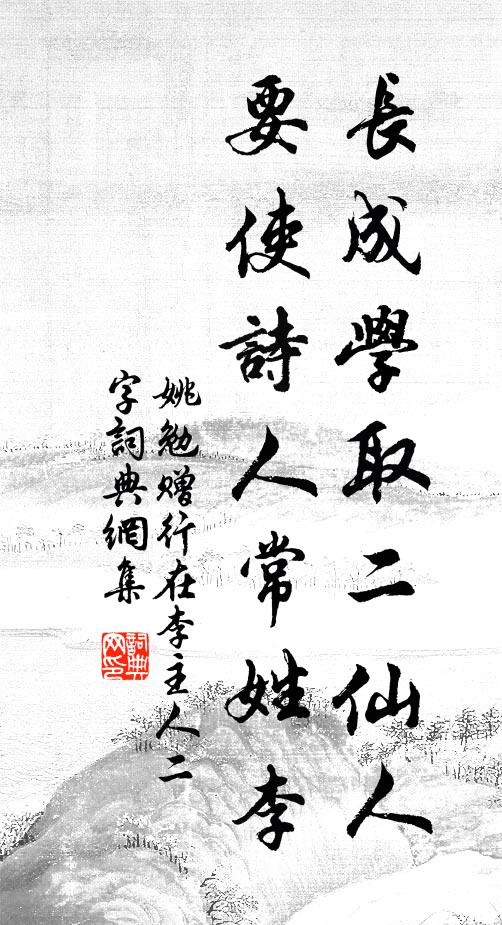 長成學取二仙人
要使詩人常姓李
姚勉贈行在李主人二
字詞典網集
詞典
网印